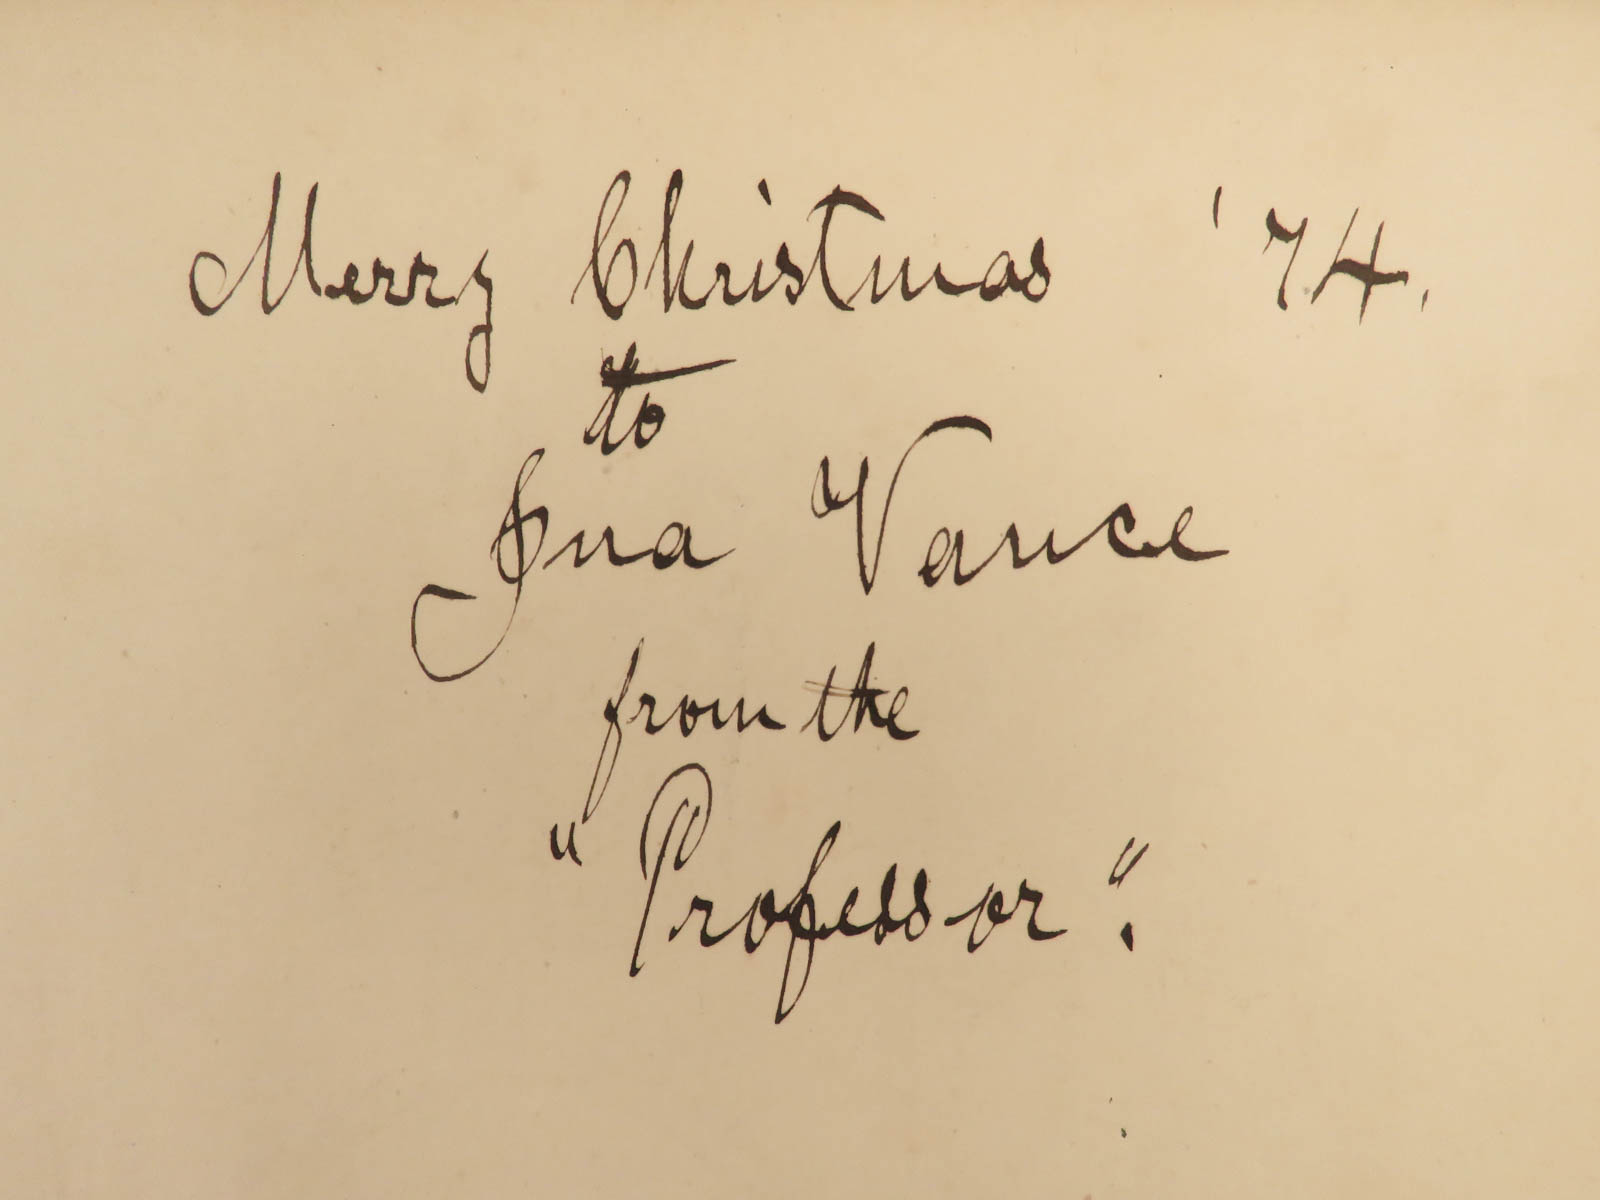 Merry Christmas '74.
to
Ina Vance
from the
"Professor".